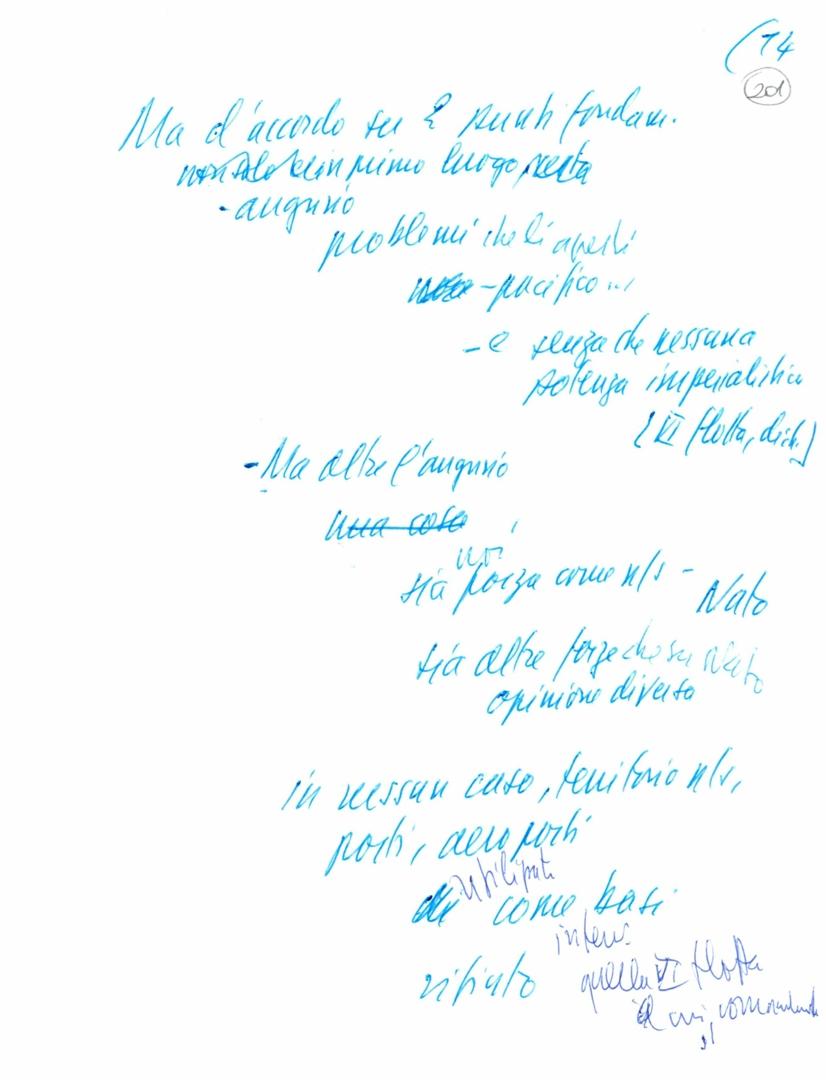 (14
201
Ma d'accordo su 2 punti fondam.
in primo luogo
- augurio
problemi che lì aperti
- pacifico ...
- e senza che nessuna
potenza imperialistica
[VI flotta, dich.]
- Ma oltre l'augurio
una cosa
noi
sia forza come n/s - Nato
sia altre forze che su Nato
opinione diversa
in nessun caso, territorio n/s,
porti, aeroporti
utilizzati
come basi
interv.
rifiuto quella VI flotta
il cui comandante